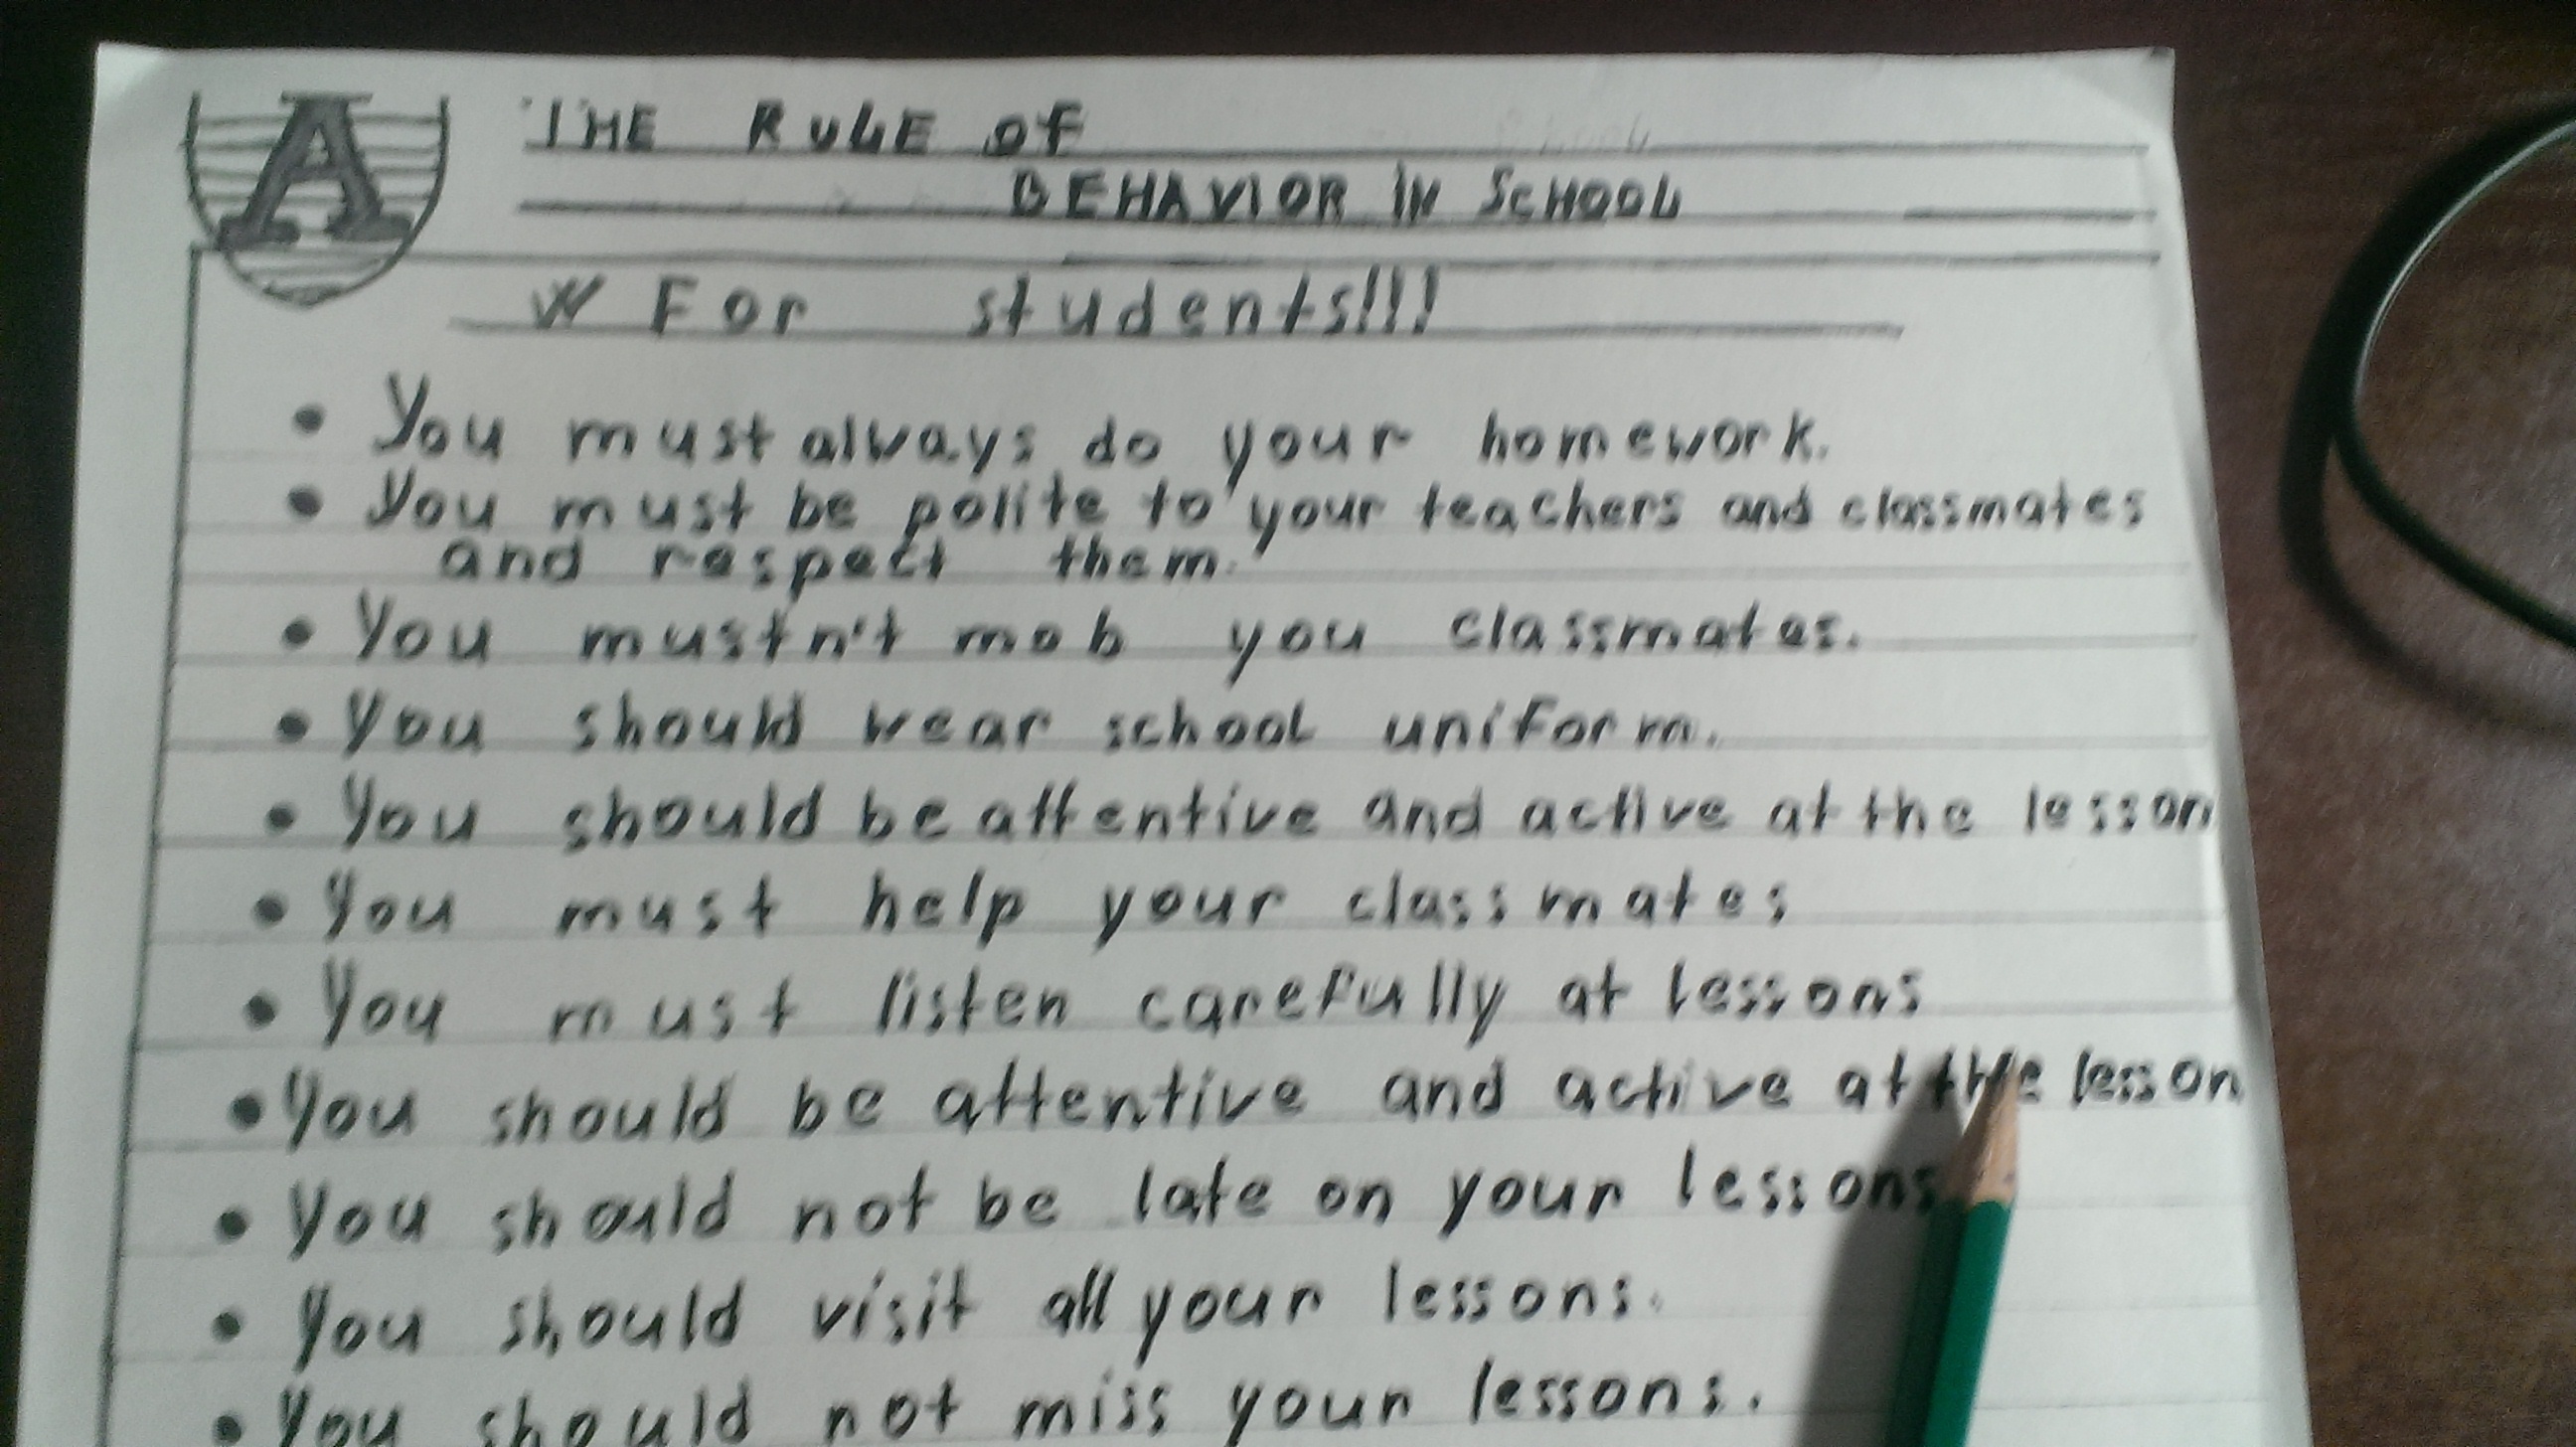 A
THE RULE OF
BEHAVIOR IN SCHOOL
W For students!!!
• You must always do your homework.
• You must be polite to your teachers and classmates
and respect them.
• You mustn't mob you classmates.
• You should wear school uniform.
• You should be attentive and active at the lesson
• You must help your classmates
• You must listen carefully at lessons
• You should be attentive and active at the lesson
• You should not be late on your lessons
• You should visit all your lessons.
• You should not miss your lessons.